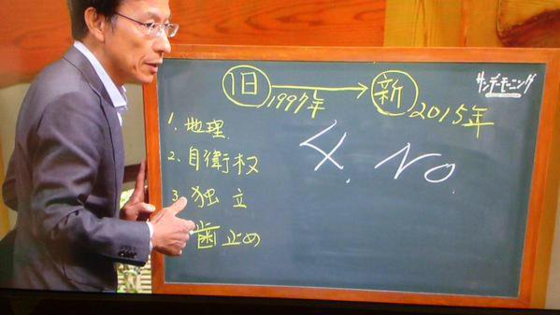 旧 → 新
1997年
2015年
サンデーモーニング
1. 地理
2. 自衛权
3. 独立
歯止め
4. No.